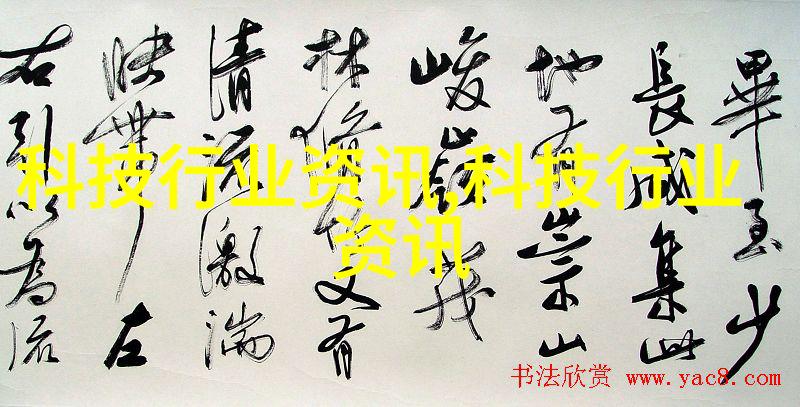 畢至少
長咸集此
地有崇山
峻嶺茂
林脩竹又有
清流激湍
映帶左
右引以為流
科技行业资讯,科技行业
资讯
书法欣赏 www.yac8.com